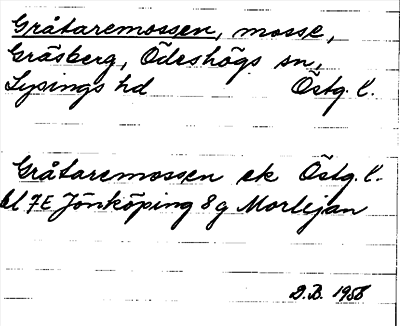 Gråtaremossen, mosse,
Gräsberg, Ödeshögs sn,
Lysings hd Östg. l.
Gråtaremossen ek Östg. l.
bl 7E Jönköping 8g Morlejan
D.B. 1956